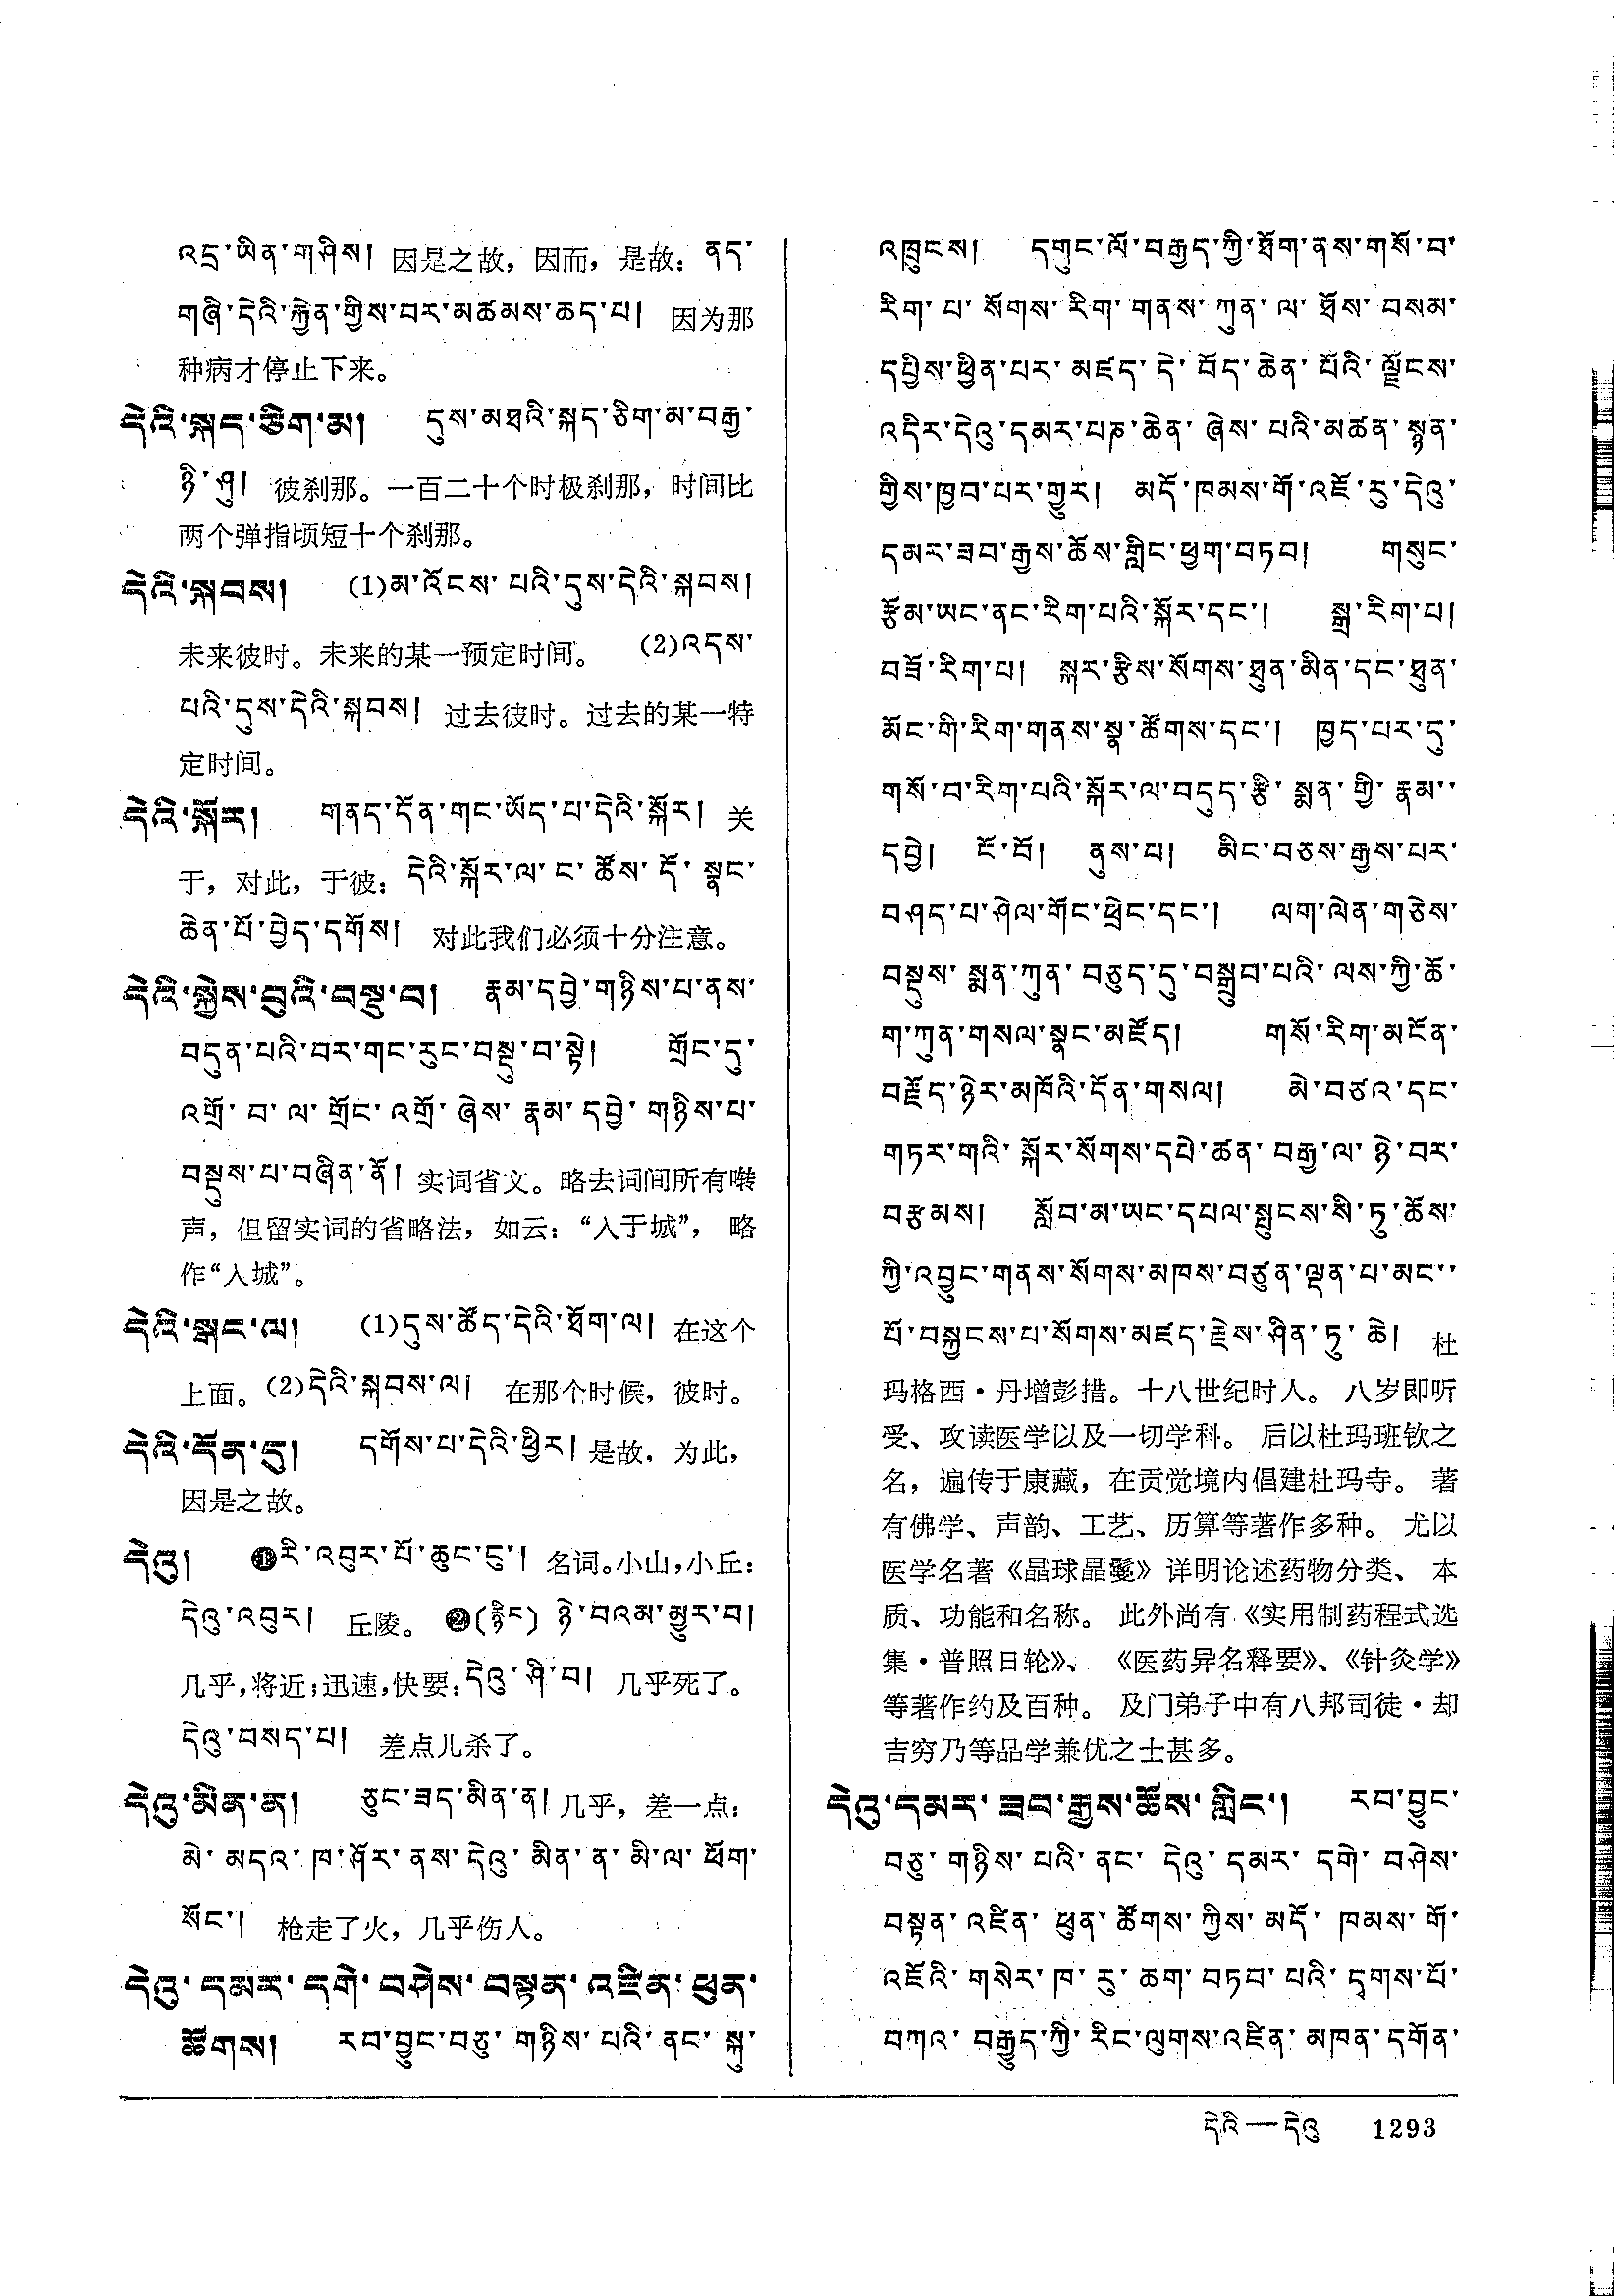 འདྲ་ཡིན་གཤིས། 因是之故，因而，是故：ནད་
གཞི་དེའི་རྐྱེན་གྱིས་བར་མཚམས་ཆད་པ། 因为那
种病才停止下来。
དེའི་སྐད་ཅིག་མ། དུས་མཐའི་སྐད་ཅིག་མ་བརྒྱ་
ཉི་ཤུ། 彼刹那。一百二十个时极刹那，时间比
两个弹指顷短十个刹那。
དེའི་སྐབས། (1)མ་འོངས་པའི་དུས་དེའི་སྐབས།
未来彼时。未来的某一预定时间。 (2)འདས་
པའི་དུས་དེའི་སྐབས། 过去彼时。过去的某一特
定时间。
དེའི་སྐོར། གནད་དོན་གང་ཡོད་པ་དེའི་སྐོར། 关
于，对此，于彼：དེའི་སྐོར་ལ་ང་ཚོས་དོ་སྣང་
ཆེན་པོ་བྱེད་དགོས། 对此我们必须十分注意。
དེའི་སྐྱེས་བུའི་བསྡུ་བ། རྣམ་དབྱེ་གཉིས་པ་ནས་
བདུན་པའི་བར་གང་རུང་བསྡུ་བ་སྟེ། གྲོང་དུ་
འགྲོ་བ་ལ་གྲོང་འགྲོ་ཞེས་རྣམ་དབྱེ་གཉིས་པ་
བསྡུས་པ་བཞིན་ནོ། 实词省文。略去词间所有啭
声，但留实词的省略法，如云：“入于城”，略
作“入城”。
དེའི་སྒང་ལ། (1)དུས་ཚོད་དེའི་ཐོག་ལ། 在这个
上面。(2)དེའི་སྐབས་ལ། 在那个时候，彼时。
དེའི་དོན་དུ། དགོས་པ་དེའི་ཕྱིར། 是故，为此，
因是之故。
དེའུ། ❶རི་འབུར་པོ་ཆུང་ངུ་། 名词。小山，小丘：
དེའུ་འབུར། 丘陵。 ❷(རྙིང) ཉེ་བའམ་མྱུར་བ།
几乎，将近；迅速，快要：དེའུ་ཤི་བ། 几乎死了。
དེའུ་བསད་པ། 差点儿杀了。
དེའུ་མིན་ན། ཅུང་ཟད་མིན་ན། 几乎，差一点：
མེ་མདའ་ཁ་ཤོར་ནས་དེའུ་མིན་ན་མི་ལ་ཕོག་
སོང་། 枪走了火，几乎伤人。
དེའུ་དམར་དགེ་བཤེས་བསྟན་འཛིན་ཕུན་
ཚོགས། རབ་བྱུང་བཅུ་གཉིས་པའི་ནང་སྐུ་
འཁྲུངས། དགུང་ལོ་བརྒྱད་ཀྱི་ཐོག་ནས་གསོ་བ་
རིག་པ་སོགས་རིག་གནས་ཀུན་ལ་ཐོས་བསམ་
དབྱིས་ཕྱིན་པར་མཛད་དེ་བོད་ཆེན་པོའི་ལྗོངས་
འདིར་དེའུ་དམར་པཎ་ཆེན་ཞེས་པའི་མཚན་སྙན་
གྱིས་ཁྱབ་པར་གྱུར། མདོ་ཁམས་གོ་འཇོ་རུ་དེའུ་
དམར་ཟབ་རྒྱས་ཆོས་གླིང་ཕྱག་བཏབ། གསུང་
རྩོམ་ཡང་ནང་རིག་པའི་སྐོར་དང་། སྒྲ་རིག་པ།
བཟོ་རིག་པ། སྐར་རྩིས་སོགས་ཐུན་མིན་དང་ཐུན་
མོང་གི་རིག་གནས་སྣ་ཚོགས་དང་། ཁྱད་པར་དུ་
གསོ་བ་རིག་པའི་སྐོར་ལ་བདུད་རྩི་སྨན་གྱི་རྣམ་
དབྱེ། ངོ་བོ། ནུས་པ། མིང་བཅས་རྒྱས་པར་
བཤད་པ་ཤེལ་གོང་ཕྲེང་དང་། ལག་ལེན་གཅེས་
བསྡུས་སྨན་ཀུན་བཅུད་དུ་བསྒྲུབ་པའི་ལས་ཀྱི་ཆོ་
ག་ཀུན་གསལ་སྣང་མཛོད། གསོ་རིག་མངོན་
བརྗོད་ཉེར་མཁོའི་དོན་གསལ། མེ་བཙའ་དང་
གཏར་གའི་སྐོར་སོགས་དཔེ་ཚན་བརྒྱ་ལ་ཉེ་བར་
བརྩམས། སློབ་མ་ཡང་དཔལ་སྤུངས་སི་ཏུ་ཆོས་
ཀྱི་འབྱུང་གནས་སོགས་མཁས་བཙུན་ལྡན་པ་མང་
པོ་བསྐྱངས་པ་སོགས་མཛད་རྗེས་ཤིན་ཏུ་ཆེ། 杜
玛格西·丹增彭措。十八世纪时人。八岁即听
受、攻读医学以及一切学科。后以杜玛班钦之
名，遍传于康藏，在贡觉境内倡建杜玛寺。著
有佛学、声韵、工艺、历算等著作多种。尤以
医学名著《晶球晶鬘》详明论述药物分类、本
质、功能和名称。此外尚有《实用制药程式选
集·普照日轮》、《医药异名释要》、《针灸学》
等著作约及百种。及门弟子中有八邦司徒·却
吉穷乃等品学兼优之士甚多。
དེའུ་དམར་ཟབ་རྒྱས་ཆོས་གླིང་། རབ་བྱུང་
བཅུ་གཉིས་པའི་ནང་དེའུ་དམར་དགེ་བཤེས་
བསྟན་འཛིན་ཕུན་ཚོགས་ཀྱིས་མདོ་ཁམས་གོ་
འཇོའི་གསེར་ཁ་རུ་ཆག་བཏབ་པའི་དྭགས་པོ་
བཀའ་བརྒྱུད་ཀྱི་རིང་ལུགས་འཛིན་མཁན་དགོན་
དེའི — དེའུ 1293